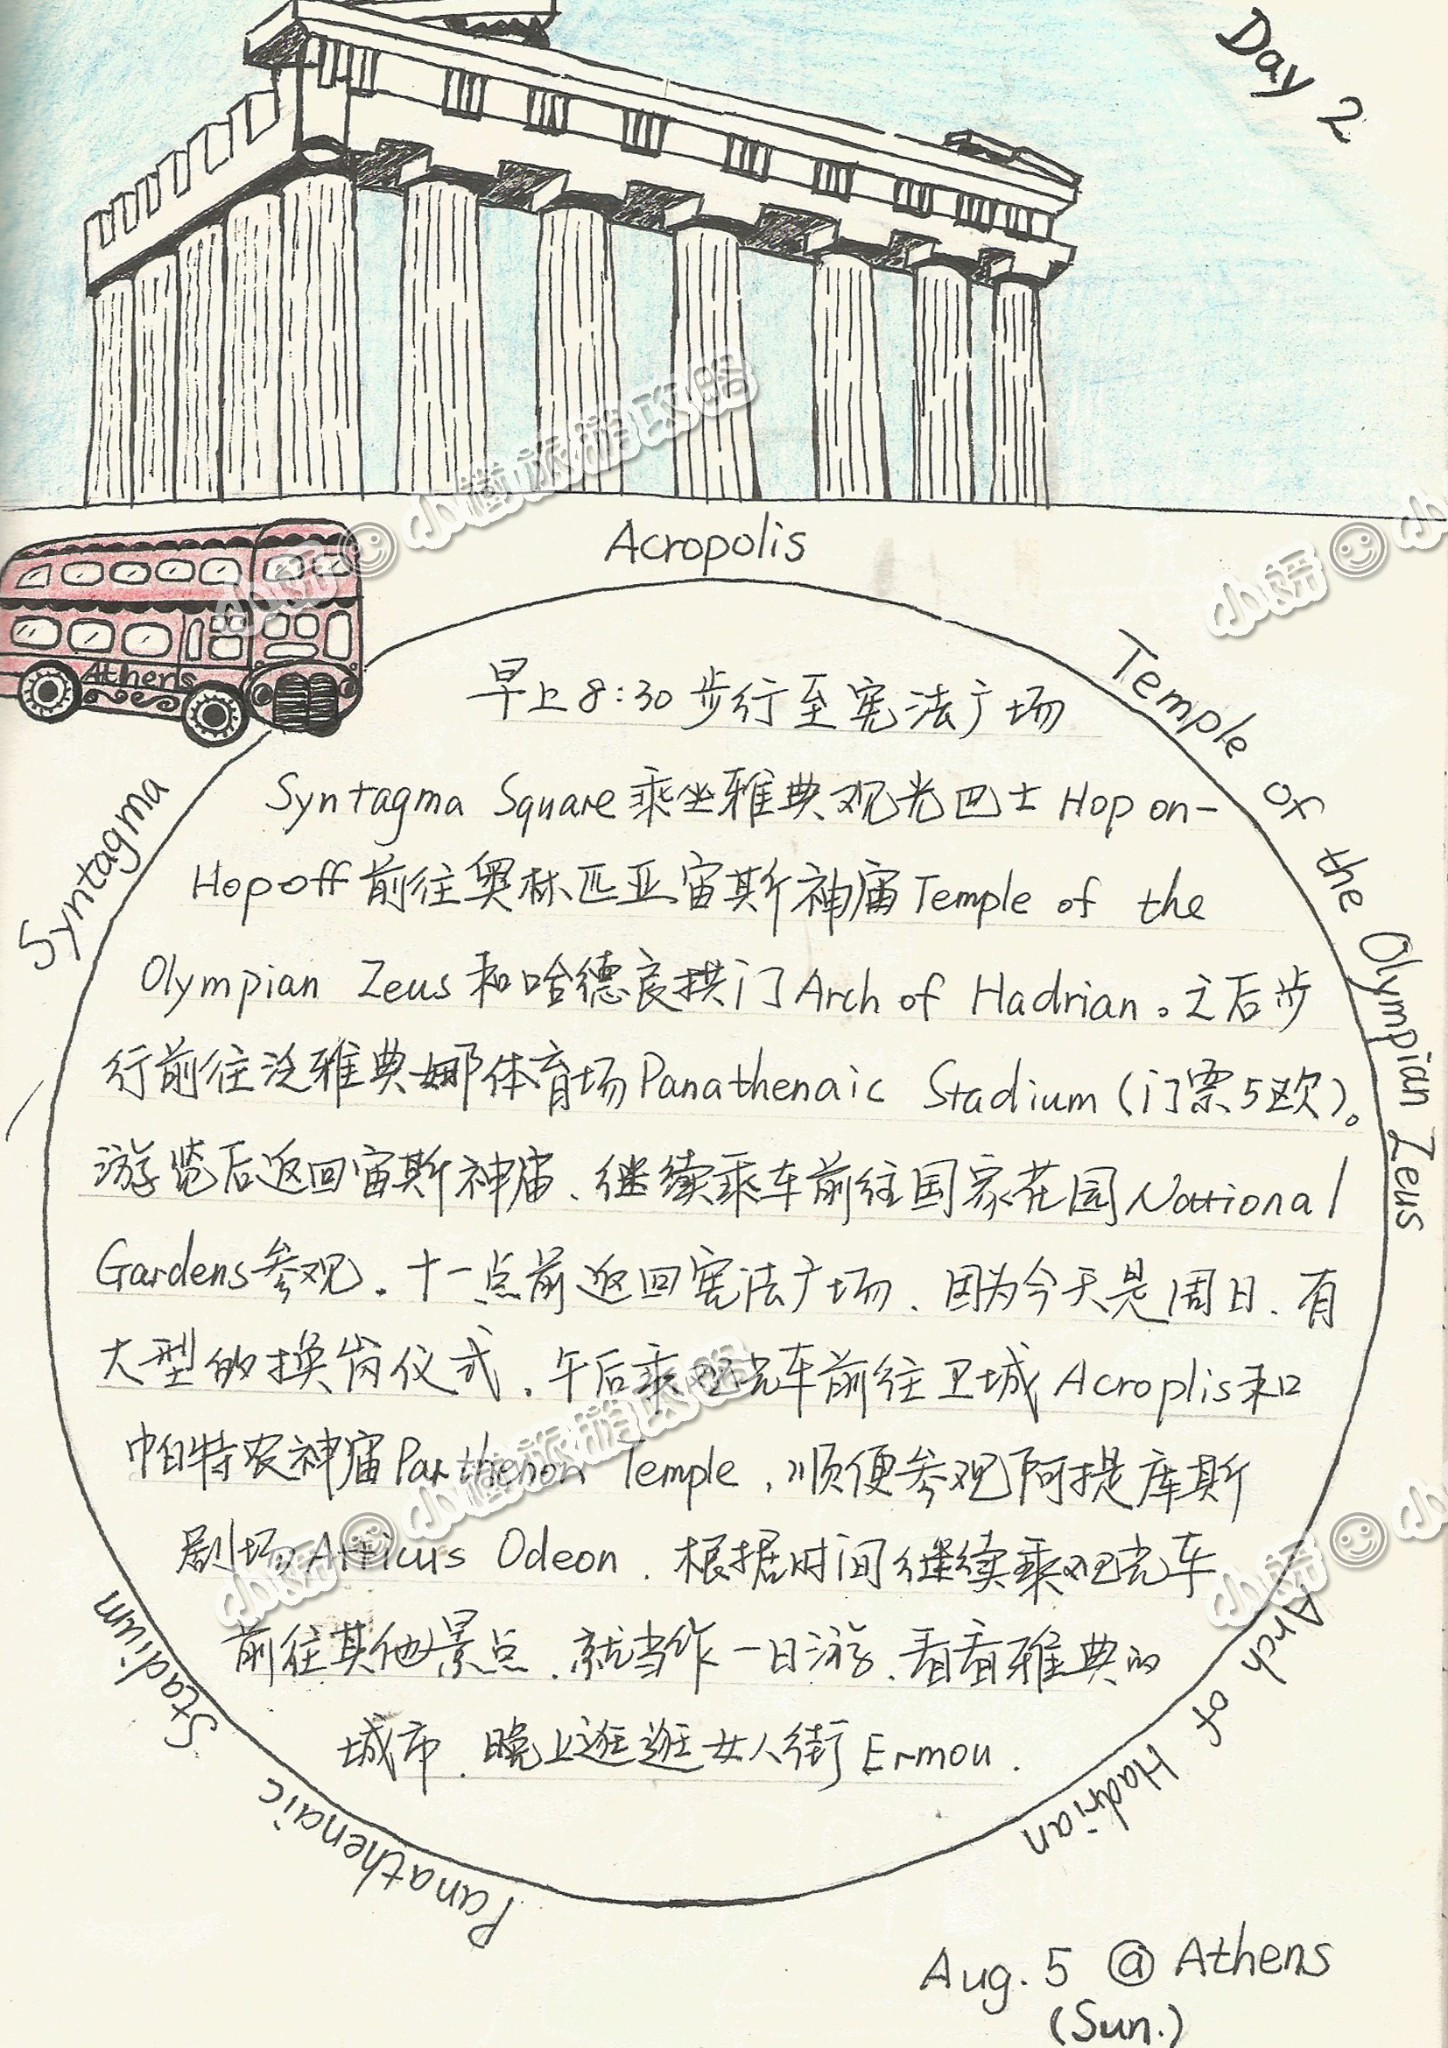 Day 2
Acropolis
Athens
Syntagma
Temple of the Olympian Zeus
早上8:30步行至宪法广场
Syntagma Square乘坐雅典观光巴士Hop on-
Hop off前往奥林匹亚宙斯神庙Temple of the
Olympian Zeus和哈德良拱门Arch of Hadrian。之后步
行前往泛雅典娜体育场Panathenaic Stadium(门票5欧)。
游览后返回宙斯神庙、继续乘车前往国家花园National
Gardens参观.十一点前返回宪法广场、因为今天是周日、有
大型的换岗仪式.午后乘观光车前往卫城Acroplis和
帕特农神庙Parthenon Temple,顺便参观阿提库斯
剧场Atticus Odeon.根据时间继续乘观光车
前往其他景点.就当作一日游、看看雅典的
城市.晚上逛逛女人街Ermou.
Arch of Hadrian
Panathenaic Stadium
Aug.5 @ Athens
(Sun.)
小妍☺小道旅游攻略
小妍☺小
小妍☺小道旅游攻略
小妍☺小